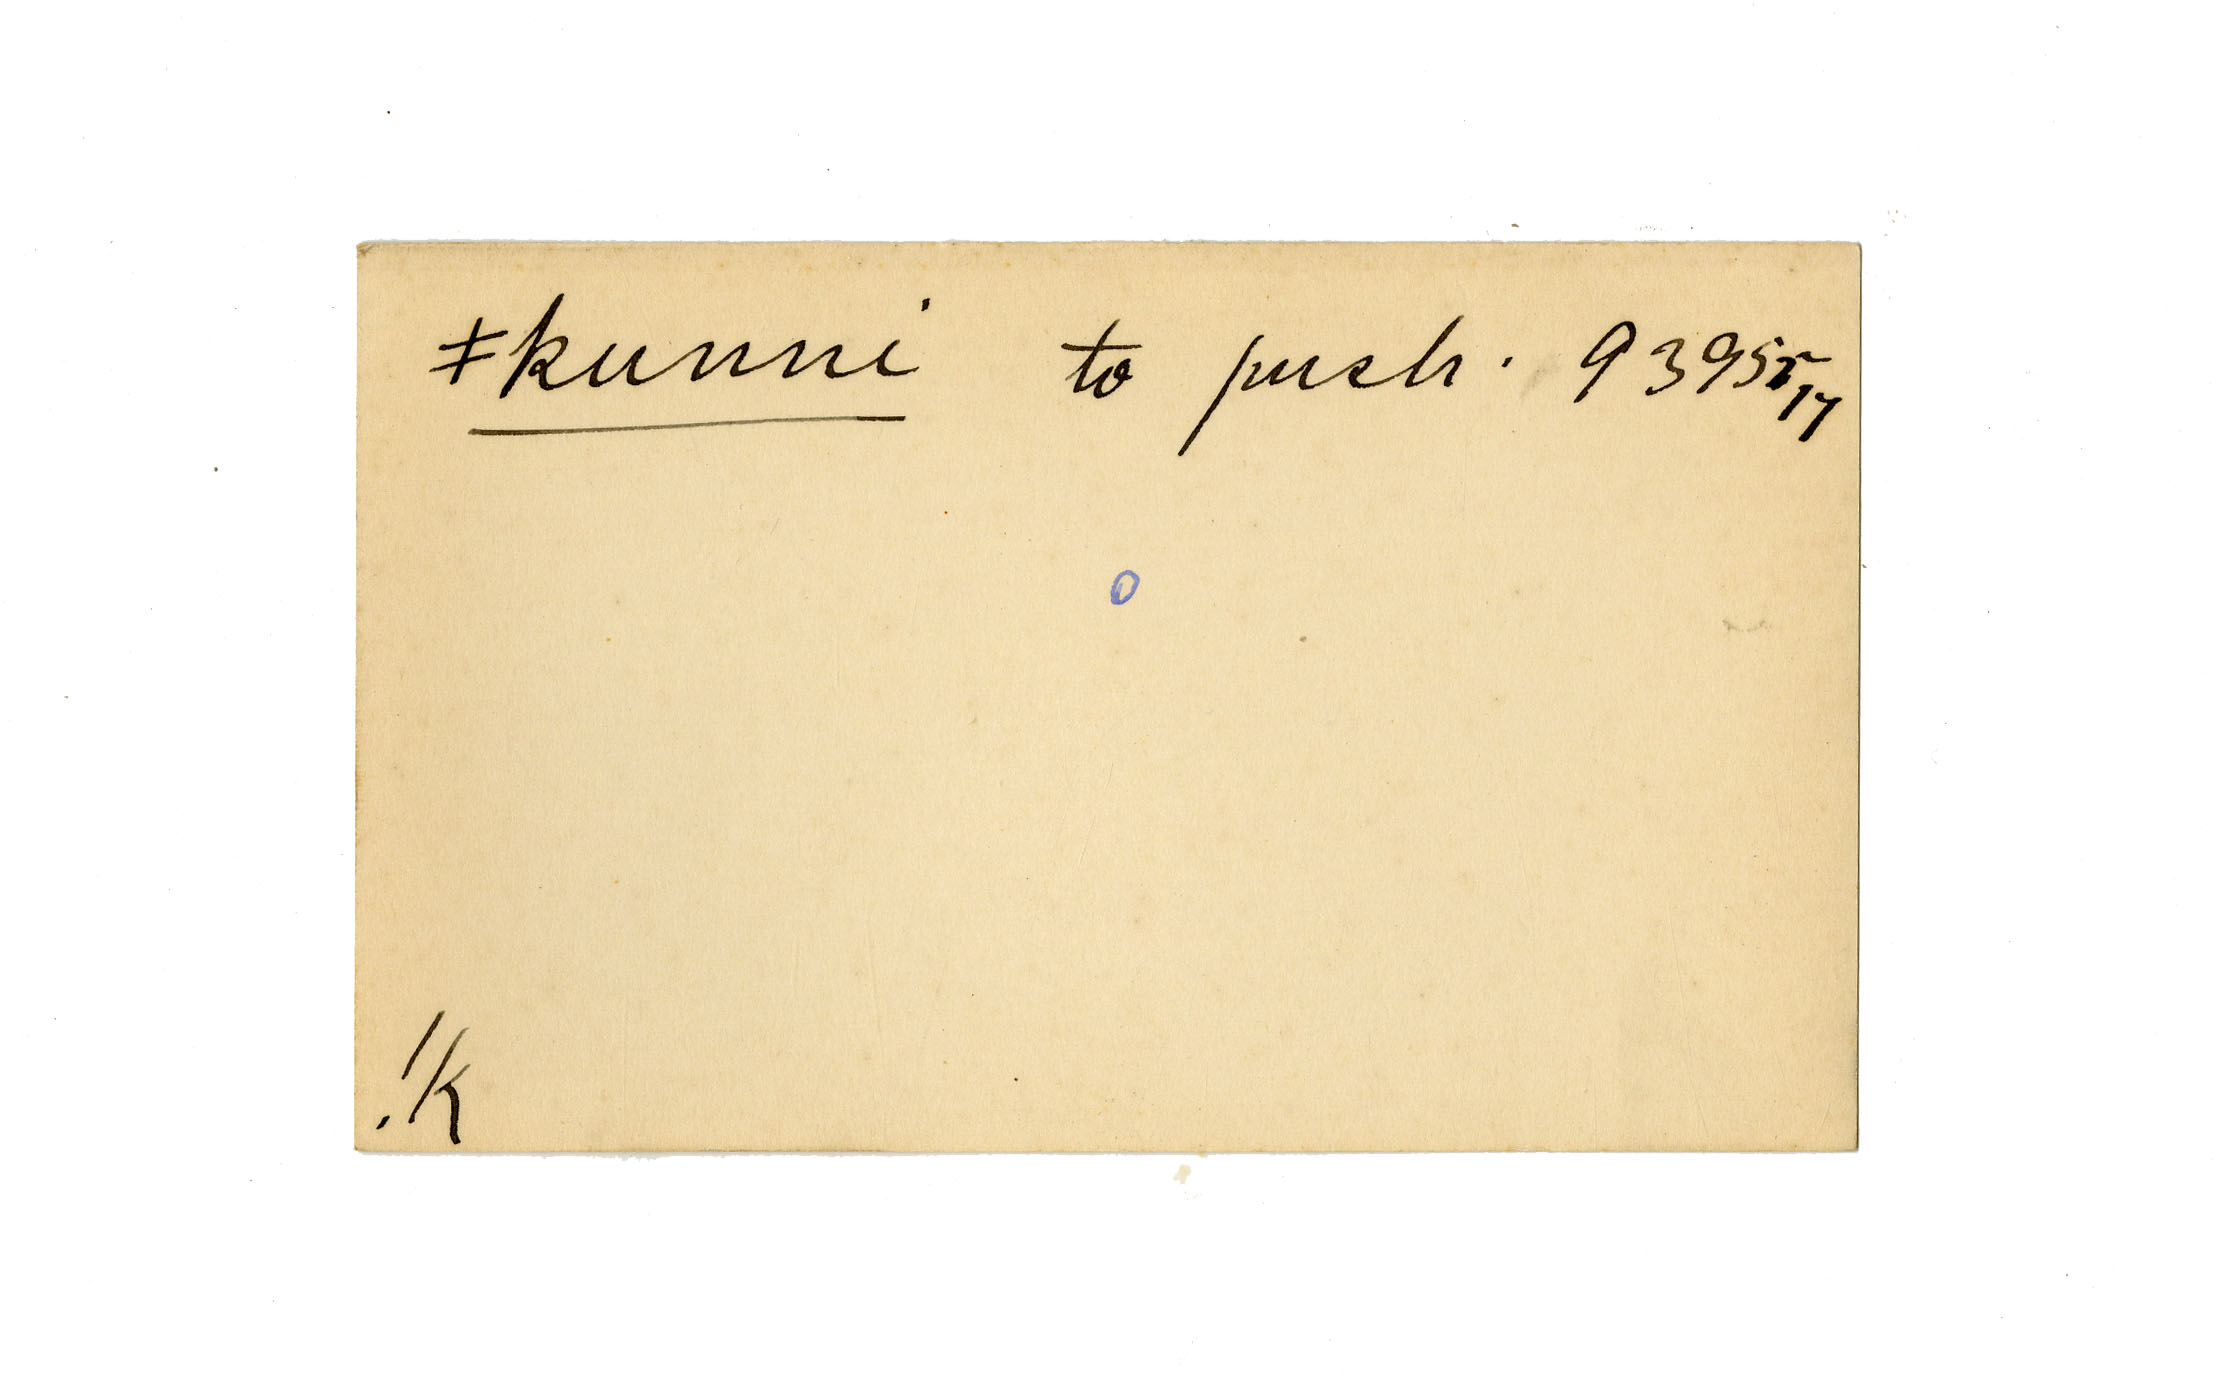 ǂkunni to push. 9395
o
!k